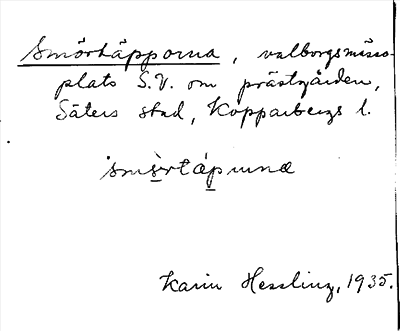 Smörtäpporna, valborgsmässo-
plats S.V. om prästgården,
Säters stad, Kopparbergs l.
Karin Hessling, 1935.